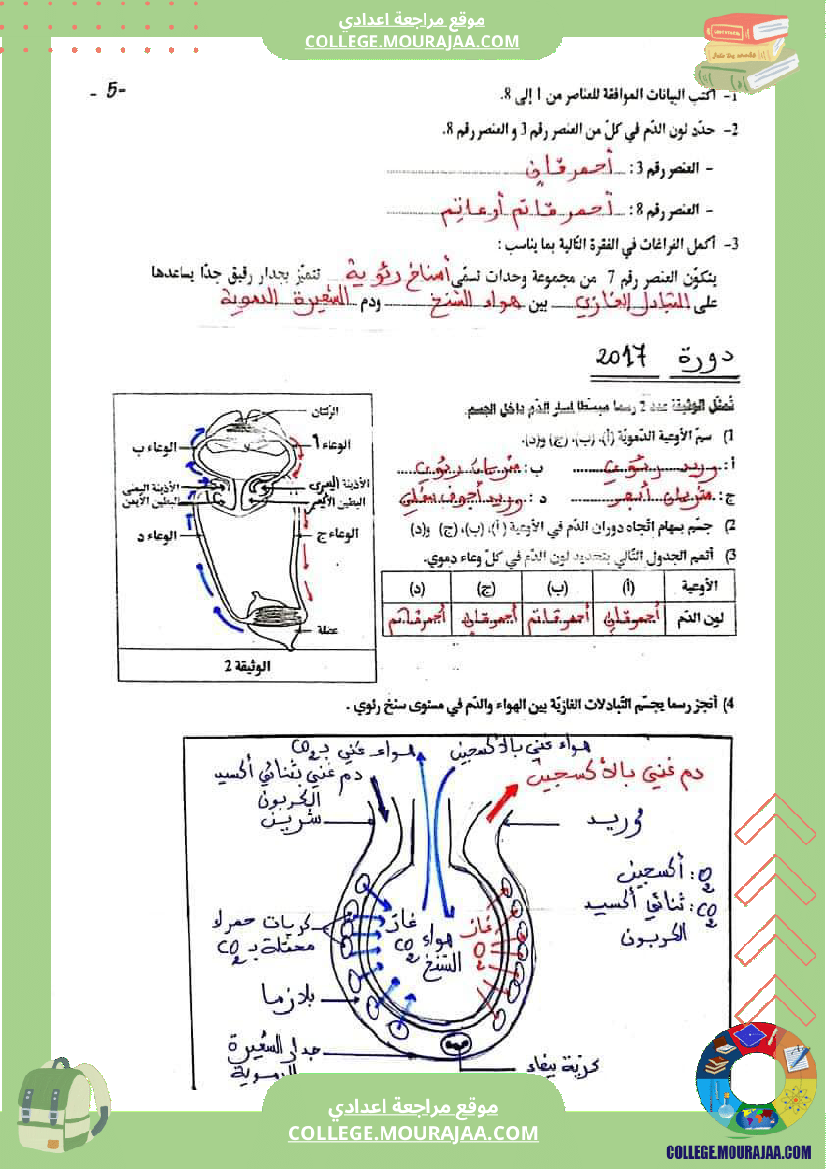 موقع مراجعة اعدادي
COLLEGE.MOURAJAA.COM
- 5-
1- اكتب البيانات الموافقة للعناصر من 1 إلى 8.
2- حدّد لون الدّم في كلّ من العنصر رقم 3 و العنصر رقم 8.
- العنصر رقم 3 : أحمر قاني
- العنصر رقم 8 : أحمر قاتم أو عاتم
3- أكمل الفراغات في الفقرة التّالية بما يناسب :
يتكوّن العنصر رقم 7 من مجموعة وحدات تسمّى أسناخ رئوية تتميّز بجدار رقيق جدّا يساعدها
على التبادل الغازي بين هواء السّنخ ودم الشّعيرة الدموية
دورة 2017
تُمثّل الوثيقة عدد 2 رسما مبسّطا لمسار الدّم داخل الجسم.
1) سمّ الأوعية الدّمويّة (أ)، (ب)، (ج) و(د).
أ : وريد رئوي ب : شريان رئوي
ج : شريان أبهر د : وريد أجوف سفلي
2) جسّم بسهام اتّجاه دوران الدّم في الأوعية (أ)، (ب)، (ج) و(د)
3) أتمم الجدول التّالي بتحديد لون الدّم في كلّ وعاء دموي.
الأوعية (أ) (ب) (ج) (د)
لون الدّم أحمر قاني أحمر قاتم أحمر قاني أحمر قاتم
الرّئتان
الوعاء أ
الوعاء ب
الأذينة اليسرى
الأذينة اليمنى
البطين الأيسر
البطين الأيمن
الوعاء ج
الوعاء د
عضلة
الوثيقة 2
4) أنجز رسما يجسّم التّبادلات الغازيّة بين الهواء والدّم في مستوى سنخ رئوي .
هواء غني بالأكسجين
هواء غني بـ CO2
دم غني بالأكسجين
دم غني بثنائي أكسيد
الكربون
شريين
وريد
O2 : أكسجين
CO2 : ثنائي أكسيد
الكربون
غاز
O2
هواء
السّنخ
غاز
CO2
كريات حمراء
محمّلة بـ CO2
بلازما
جدار الشّعيرة
الدموية
كريّة بيضاء
موقع مراجعة اعدادي
COLLEGE.MOURAJAA.COM
COLLEGE.MOURAJAA.COM